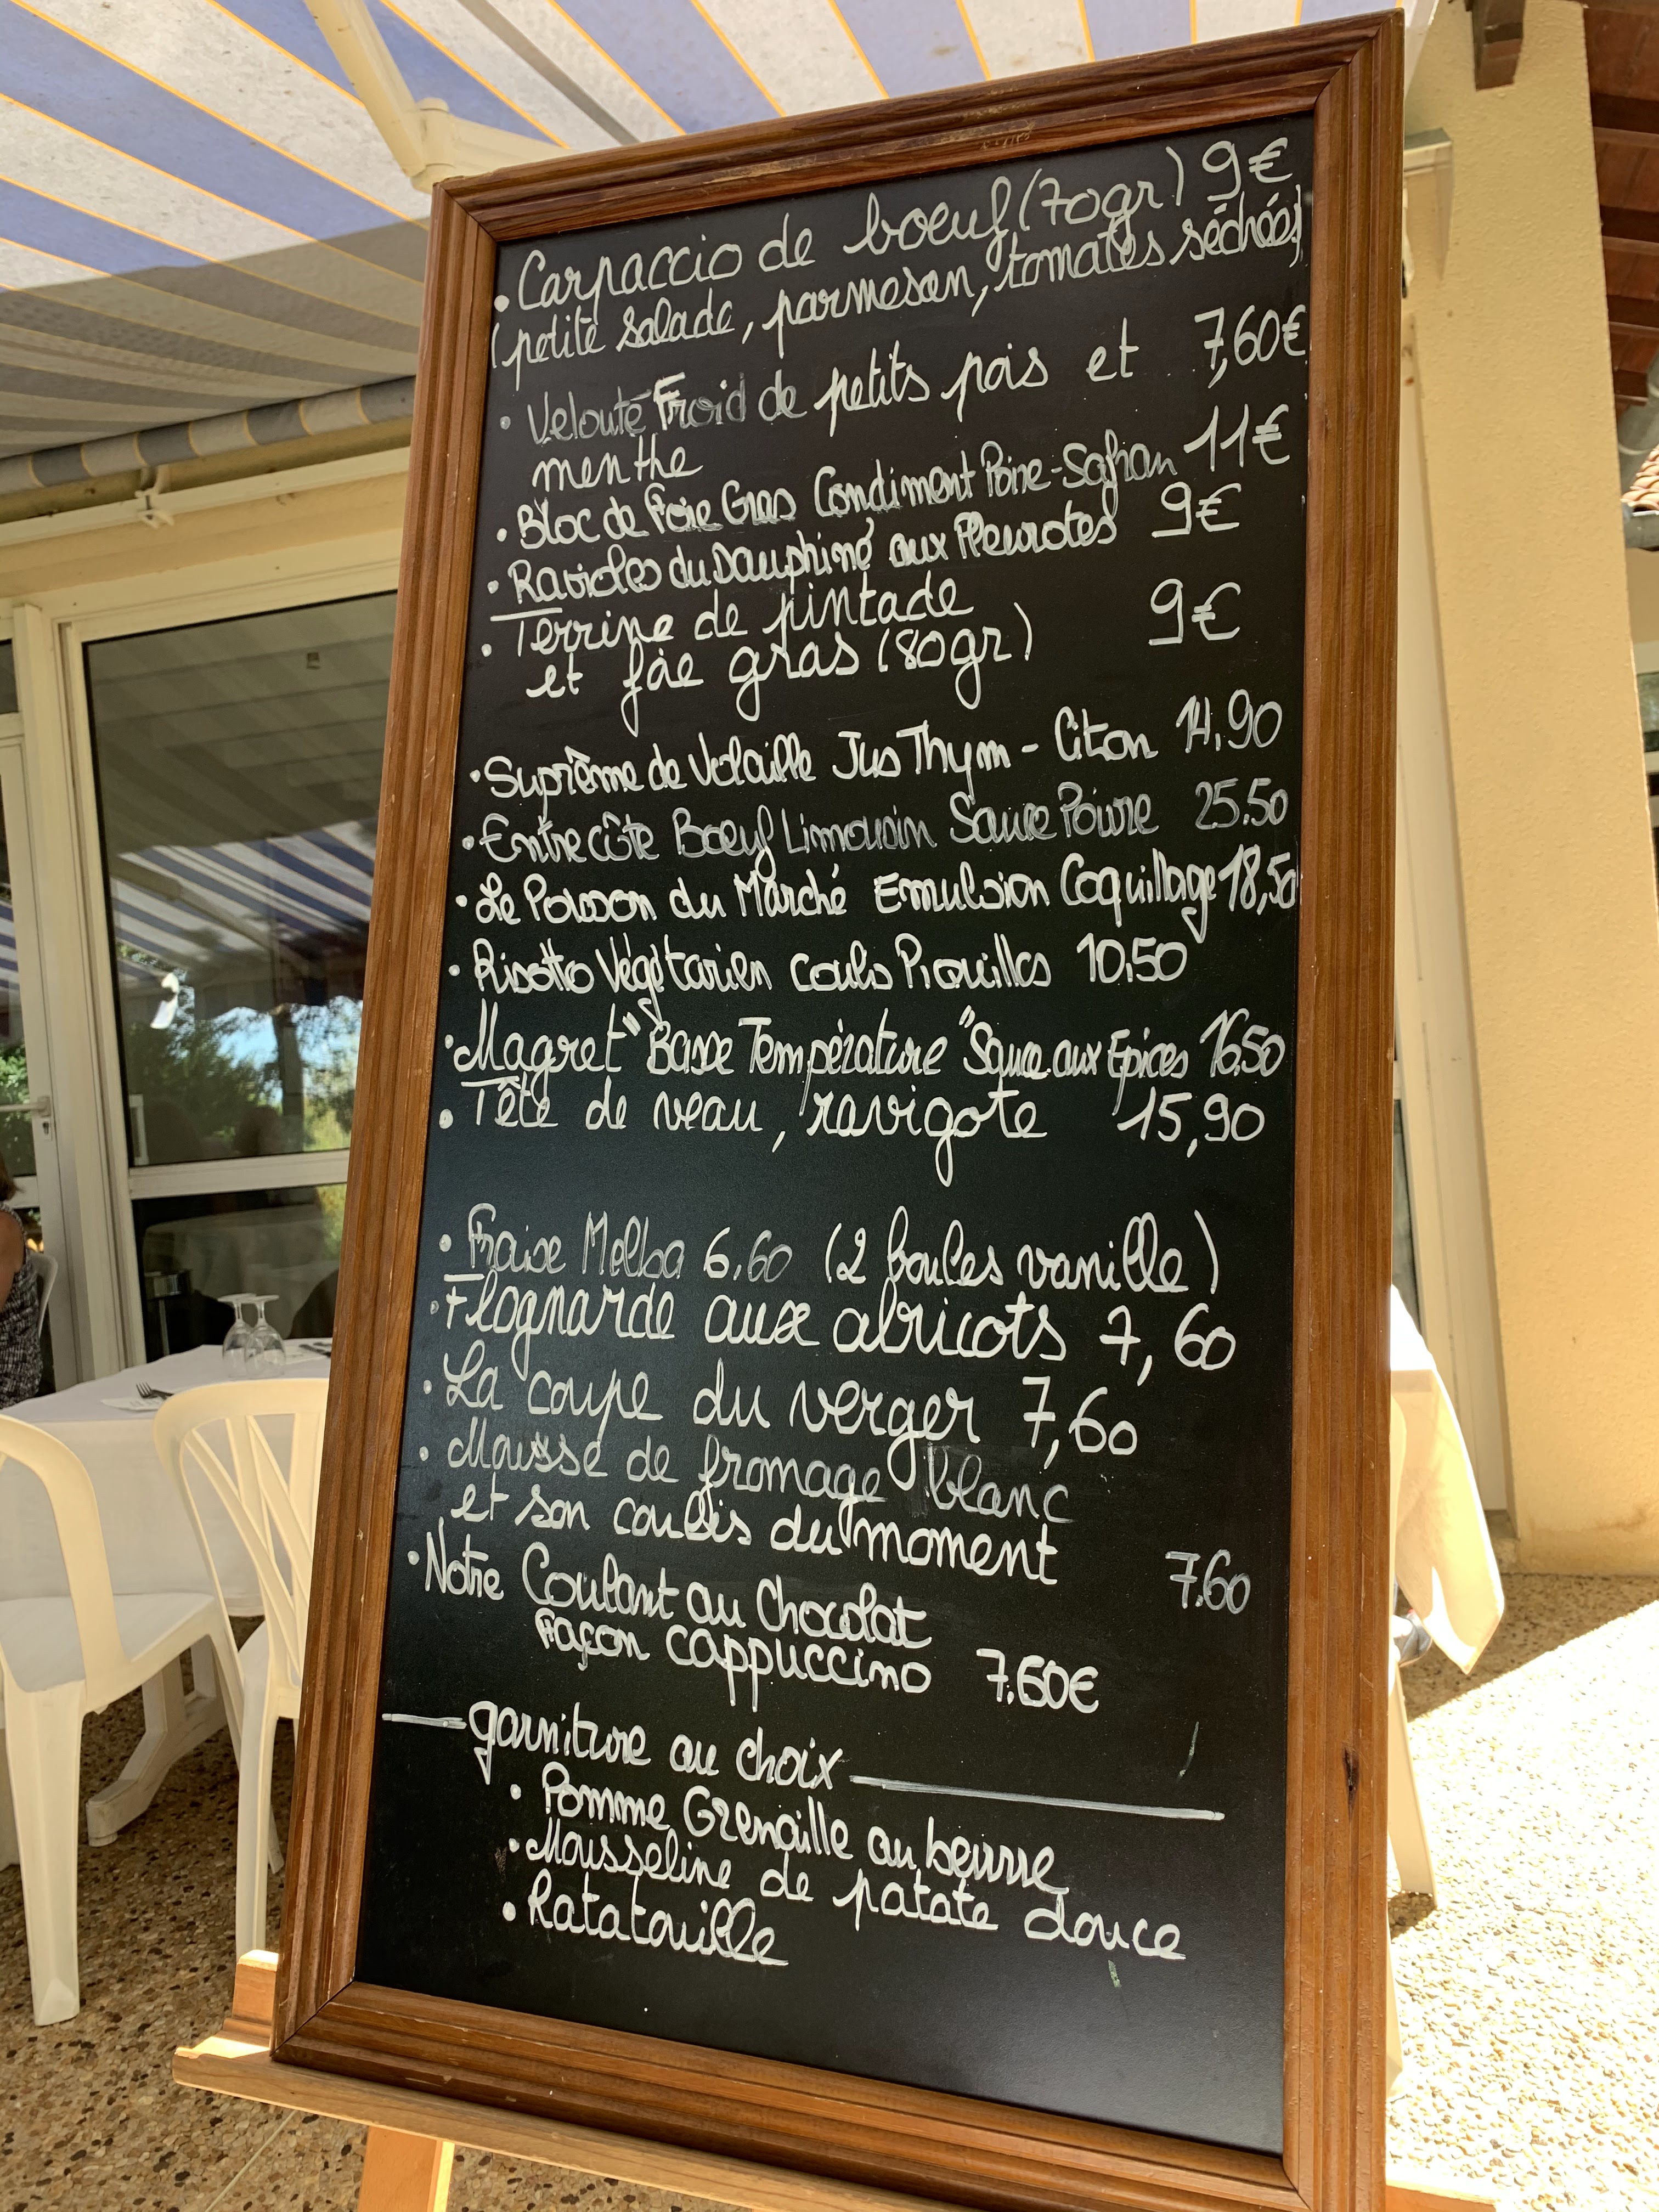 • Carpaccio de boeuf (70gr) 9€
(petite salade, parmesan, tomates séchées)
• Velouté Froid de petits pois et 7,60€
menthe
• Bloc de Foie Gras Condiment Poire-Safran 11€
• Ravioles du Dauphiné aux Pleurotes 9€
• Terrine de pintade
et foie gras (80gr) 9€
• Suprême de Volaille Jus Thym - Citron 14.90
• Entrecôte Boeuf Limousin Sauce Poivre 25.50
• Le Poisson du Marché Emulsion Coquillage 18,50
• Risotto Végétarien Coulis Piquillos 10.50
• Magret "Basse Température" Sauce aux Epices 16.50
• Tête de veau, ravigote 15,90
• Fraise Melba 6.60 (2 boules vanille)
• Flognarde aux abricots 7,60
• La coupe du verger 7,60
• Mousse de fromage blanc
et son coulis du moment 7.60
• Notre Coulant au Chocolat
Façon cappuccino 7.60€
garniture au choix
• Pomme Grenaille au beurre
• Mousseline de patate douce
• Ratatouille